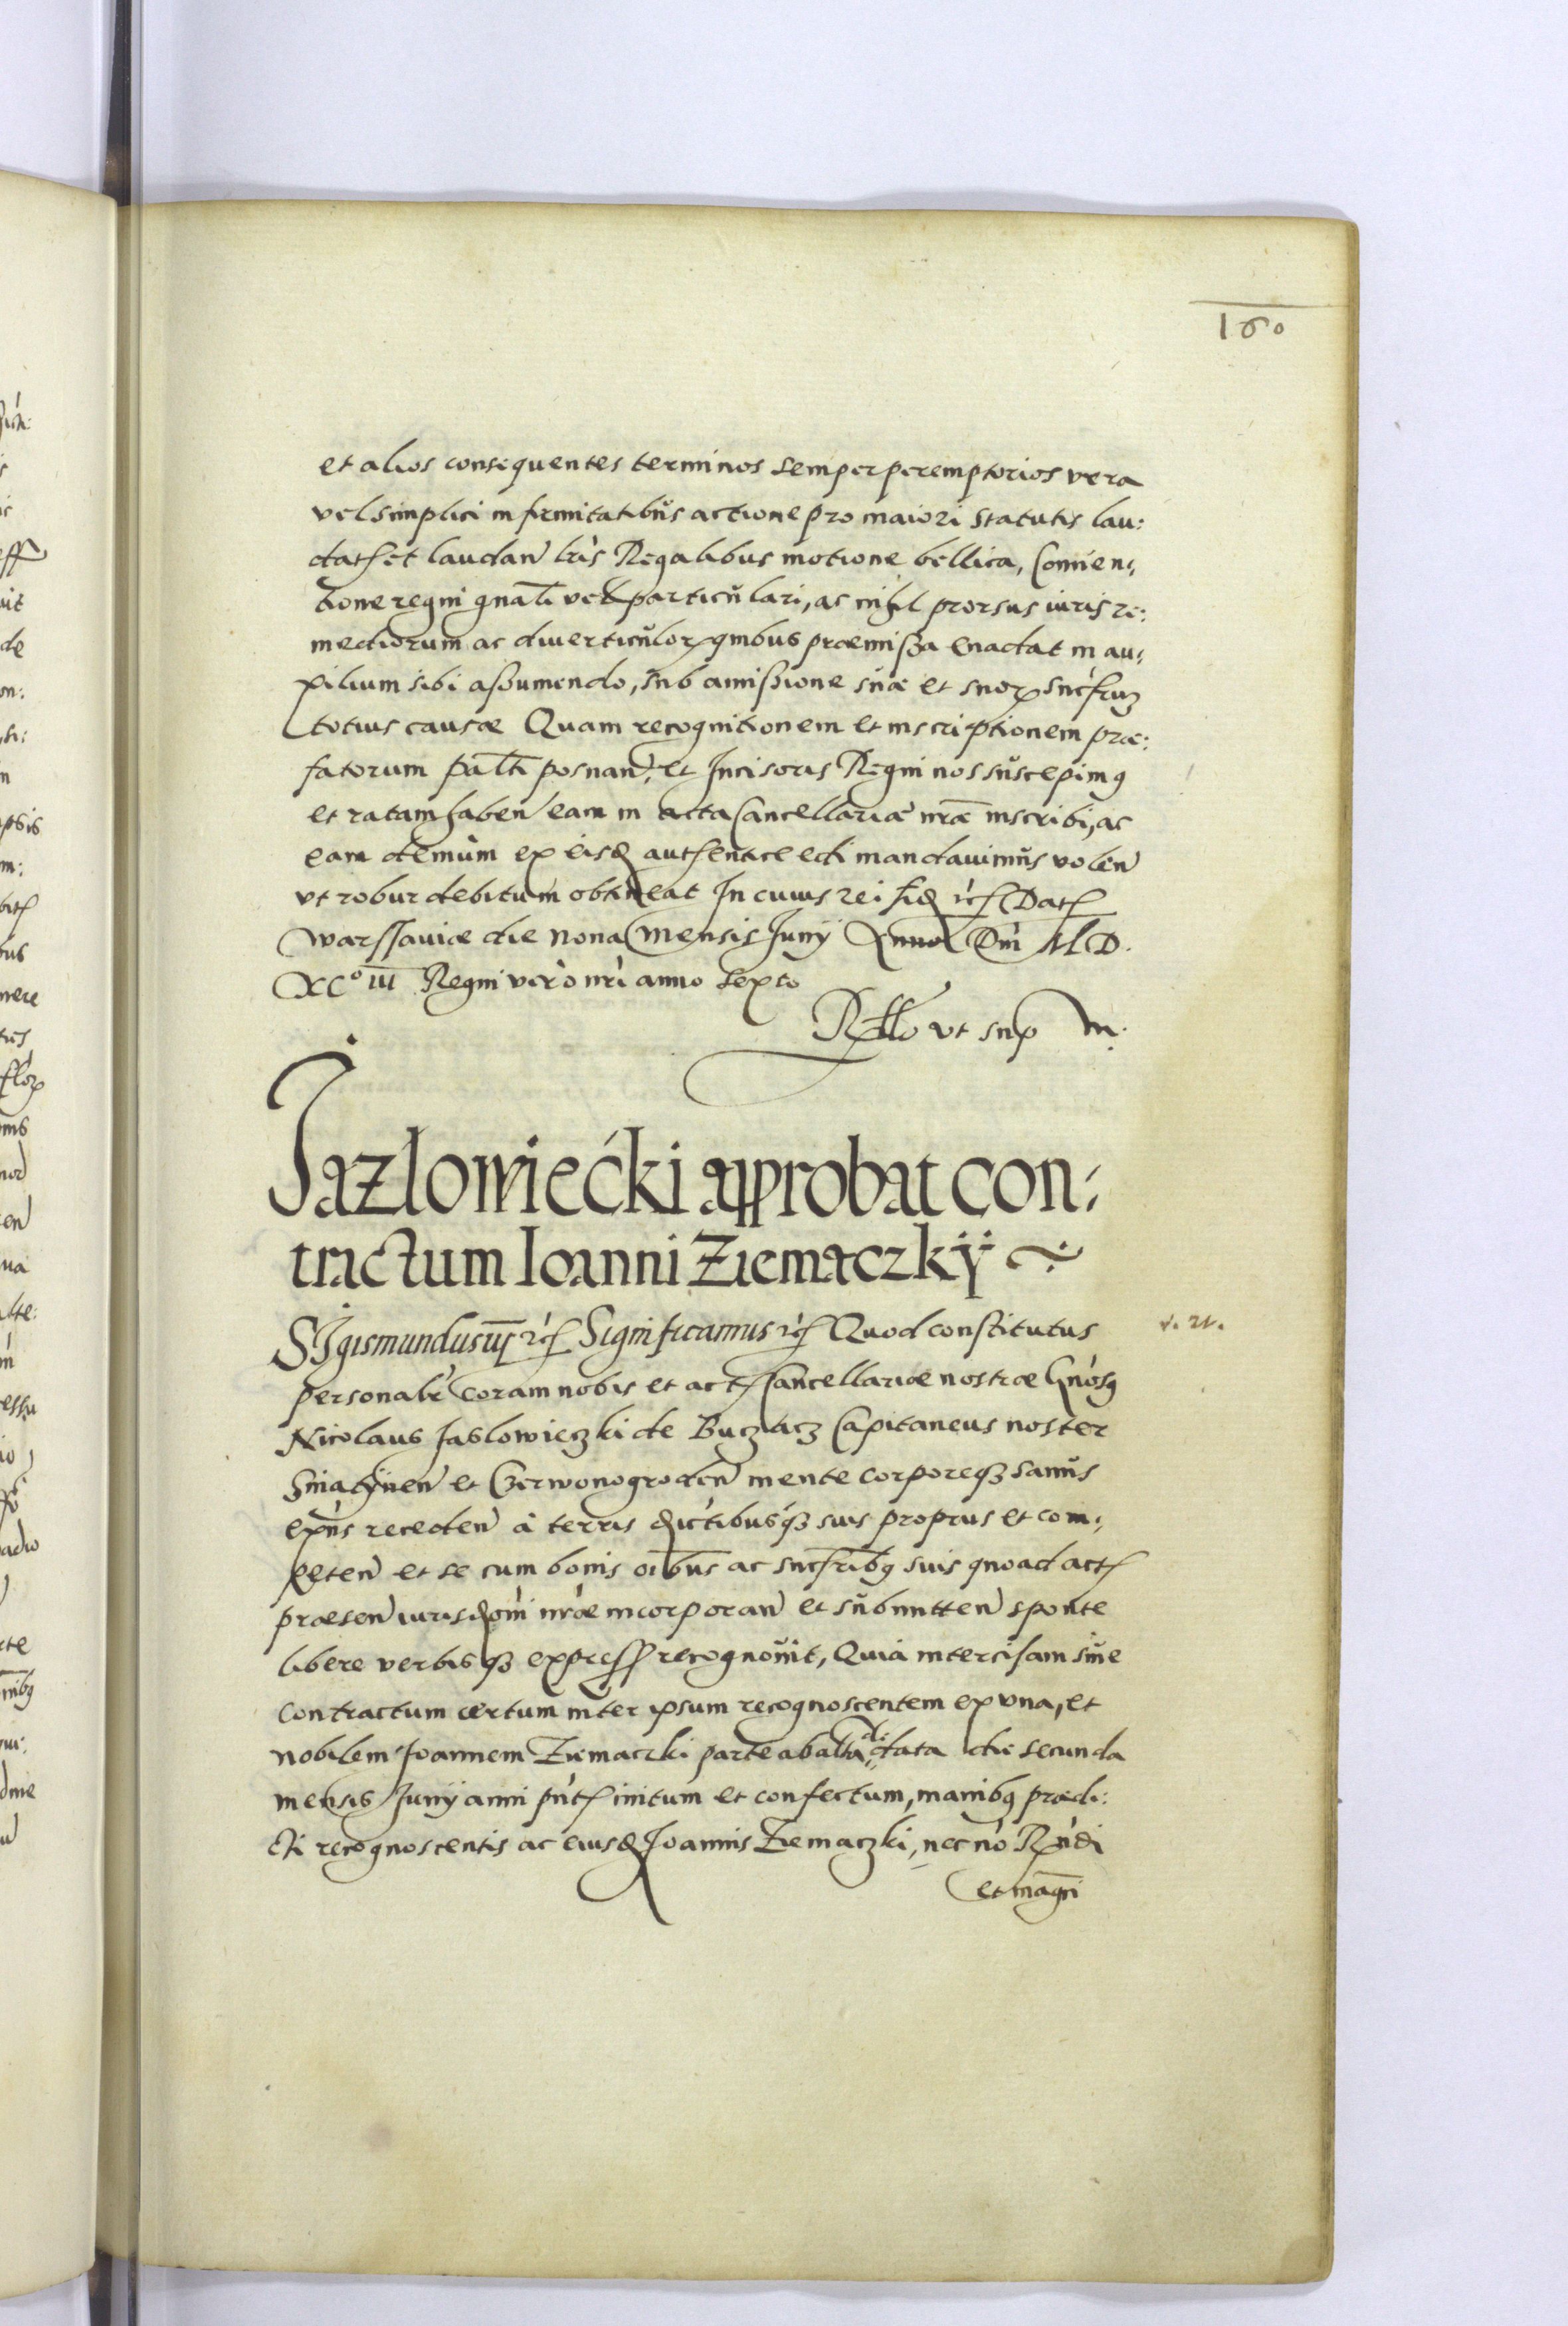 160
et alios consequentes terminos semper peremptorios vera
vel simplici infirmitatibus actione pro maiori statutis lau:
dat et laudan lris Regalibus motione bellica, Conuen:
tione regni gnali vel particulari, ac nihil prorsus iuris re:
mediorum ac diuerticulor quibus præmissa euadat in au:
xilium sibi assumendo, sub amissione suæ et suor
totius causæ Quam recognitionem et inscriptionem præ:
fatorum palti posnan, et Incisoris Regni nos suscepimus
et ratam haben eam in acta Cancellariæ nræ inscribi, ac
eam demum ex eisd authentice edi mandauimus volen
vt robur debitum obtineat In cuius rei fid rc Dat
Warssauiæ die nona mensis Iunij Anno Dni M D.
XC° III Regni vero nri anno sexto
Rello vt sup m.
Jazlowiećki approbat con:
tractum Ioanni Ziemaczkÿ
SIgismundus iij rc Significamus rc Quod constitutus
v. 21.
personalr coram nobis et act Cancellariæ nostræ Gnosus
Nicolaus Jaslowieczki de Buczacz Capitaneus noster
Sniatÿnen et Czerwonogroden mente corporeq sanus
exns receden à terris dictibusq suis proprijs et com:
peten et se cum bonis oibus ac suis quoad act
præsen iurisdoni nræ incorporan et submitten sponte
libere verbisq express recognouit, Quia intercisam siue
contractum certum inter ipsum recognoscentem ex vna, et
nobilem Joannem Ziemaczki parte ab alia de data die secunda
mensis Junij anni pnt initum et confectum, manibus prædi:
cti recognoscentis ac eiusd Joannis Ziemaczki, nec no Rndi
et magci